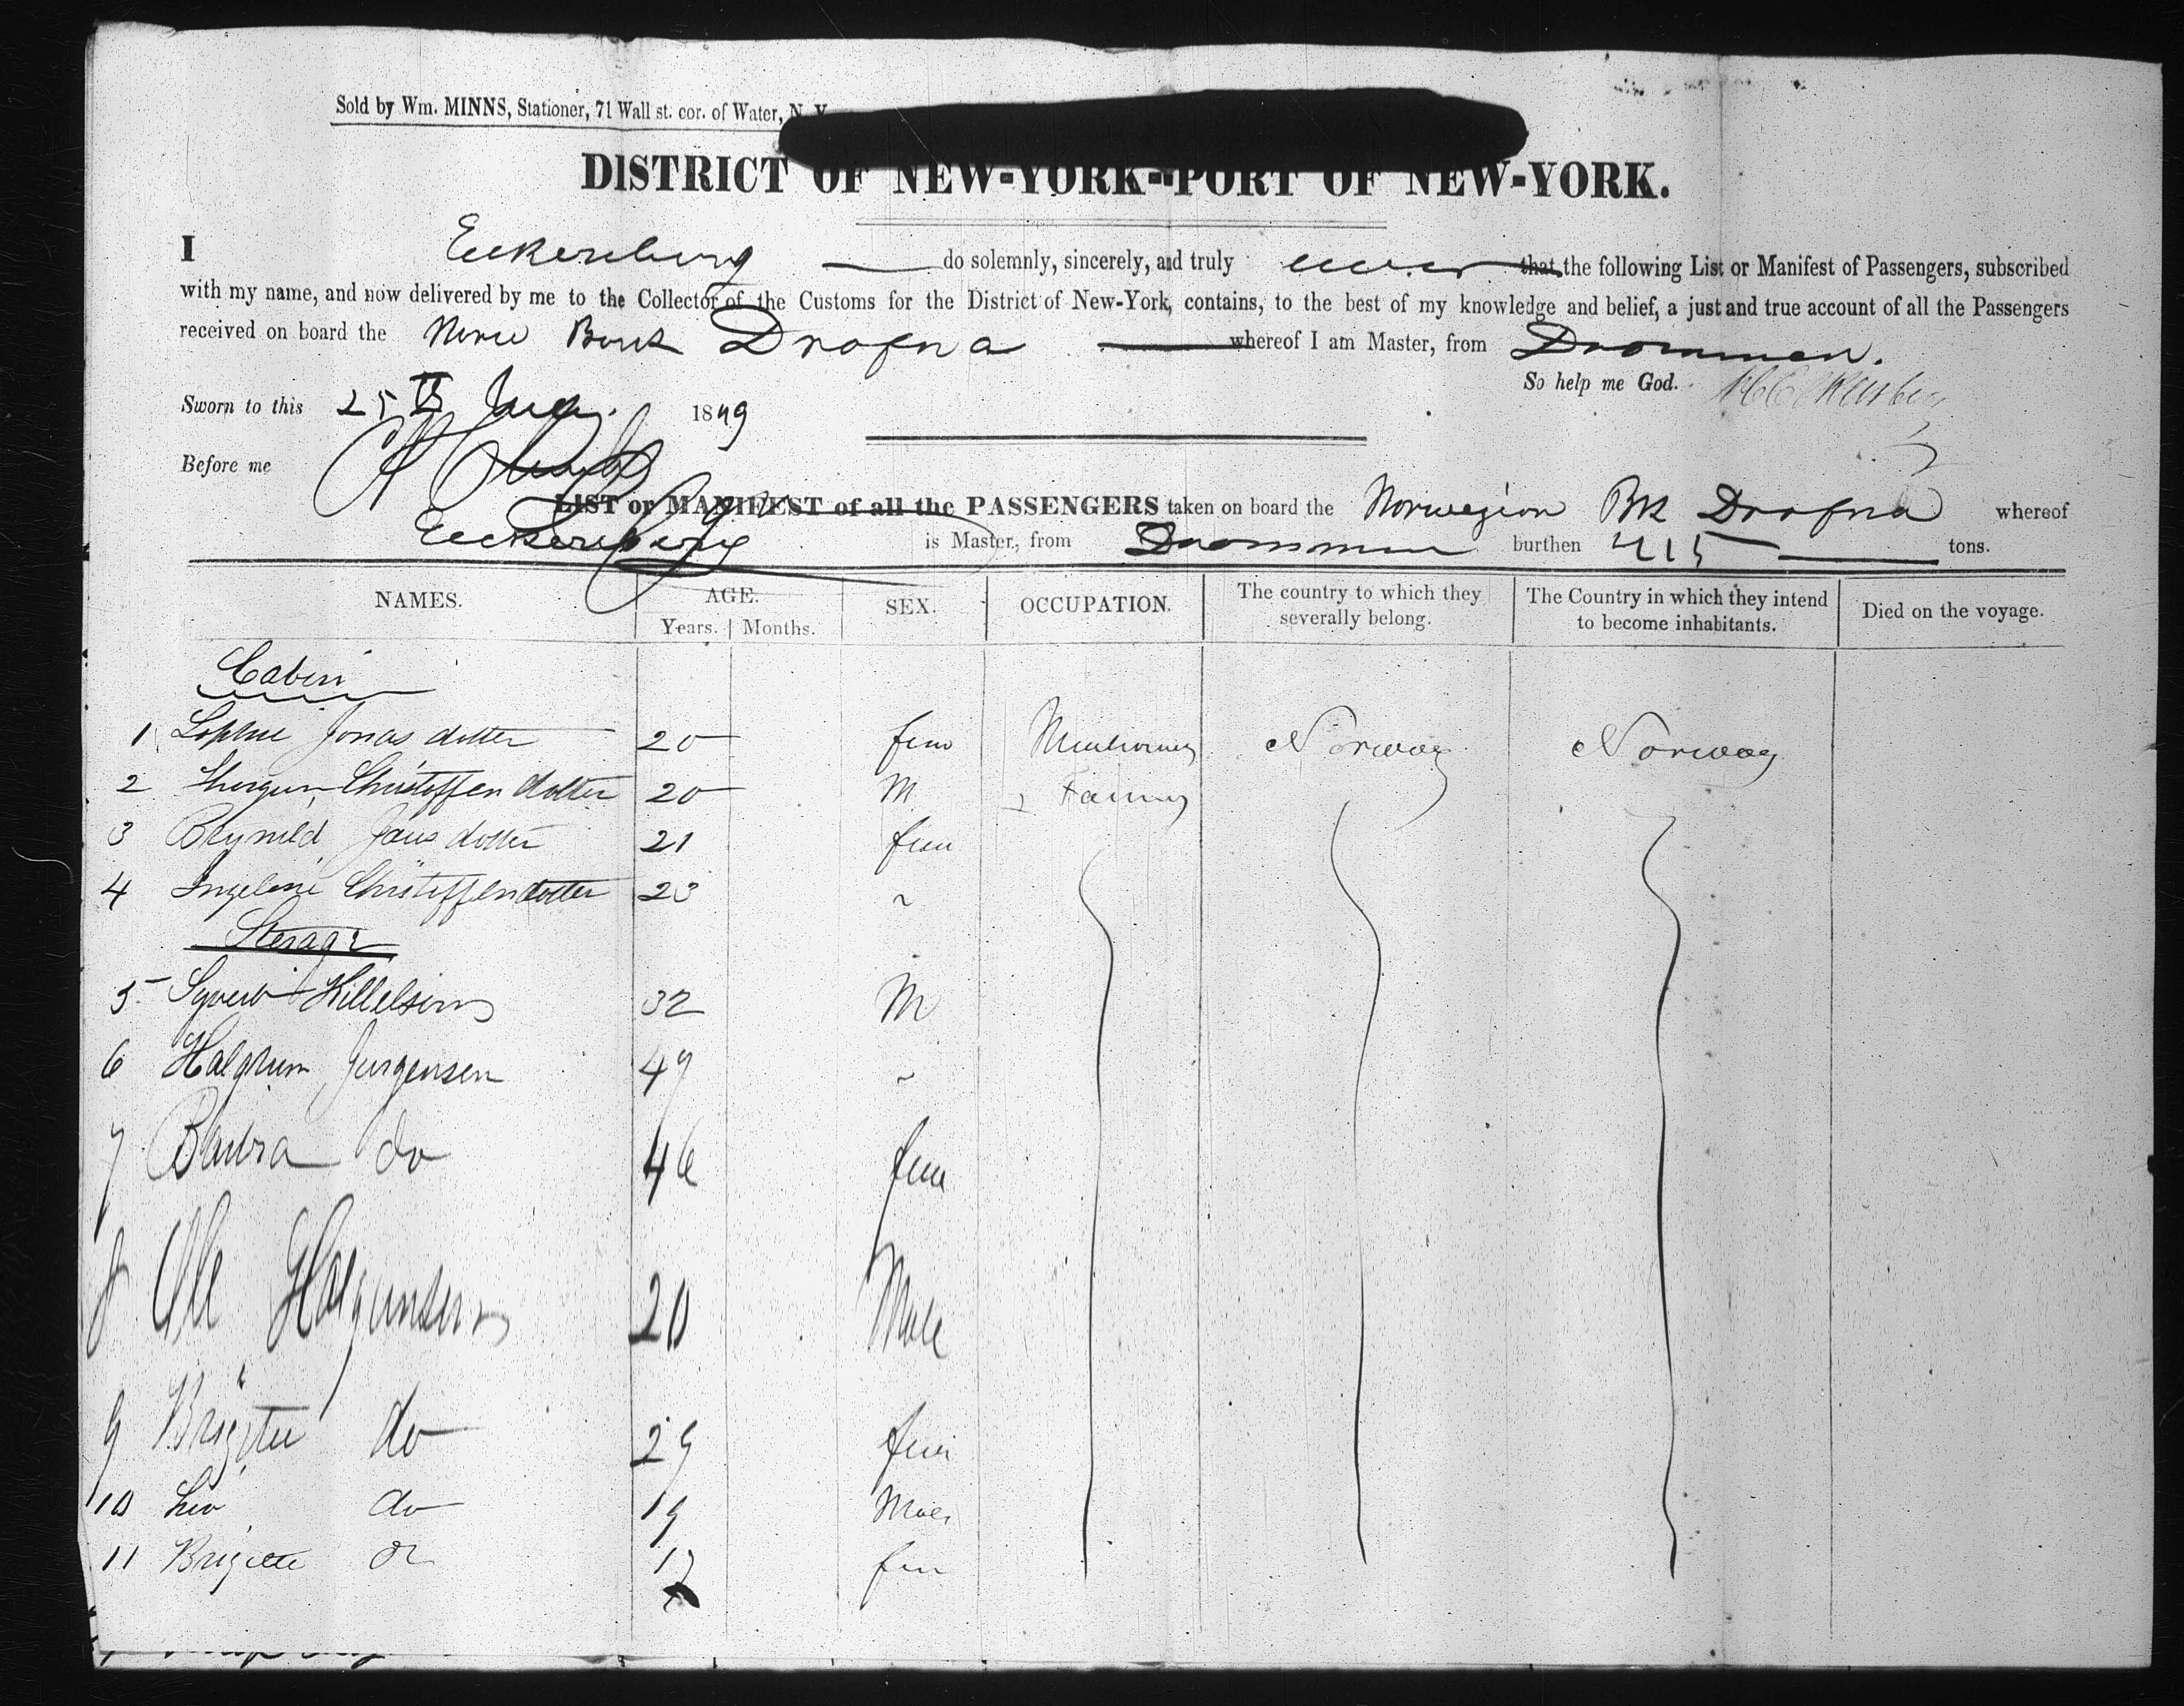 Sold by Wm. MINNS, Stationer, 71 Wall st. cor. of Water, N. Y.
DISTRICT OF NEW-YORK--PORT OF NEW-YORK.
I Eckersburg do solemnly, sincerely, and truly swear that the following List or Manifest of Passengers, subscribed
with my name, and now delivered by me to the Collector of the Customs for the District of New-York, contains, to the best of my knowledge and belief, a just and true account of all the Passengers
received on board the Norw Bark Drofna whereof I am Master, from Drommen.
So help me God.
Sworn to this 25 1849
Before me
LIST or MANIFEST of all the PASSENGERS taken on board the Norwegion Bk Drofna whereof
Eckersburg is Master, from Drommen burthen 415 tons.
NAMES. AGE. SEX. OCCUPATION. The country to which they severally belong. The Country in which they intend to become inhabitants. Died on the voyage.
Years. Months.
Cabin
1 Sophie Jonas dotter 20 fem Norway Norway
2 Christoffen dotter 20 M Farmer
3 dotter 21 fem
4 Ingeline Christoffen dotter 23 ~
Sterage
5 Syvert 32 M
6 Halgrum Jurgensen 49 ~
7 Barbra do 46 fem
8 Ole Halgumsen 20 Male
9 Brigitte do 29 fem
10 Liv do 19 Male
11 Brigitte do 17 fem